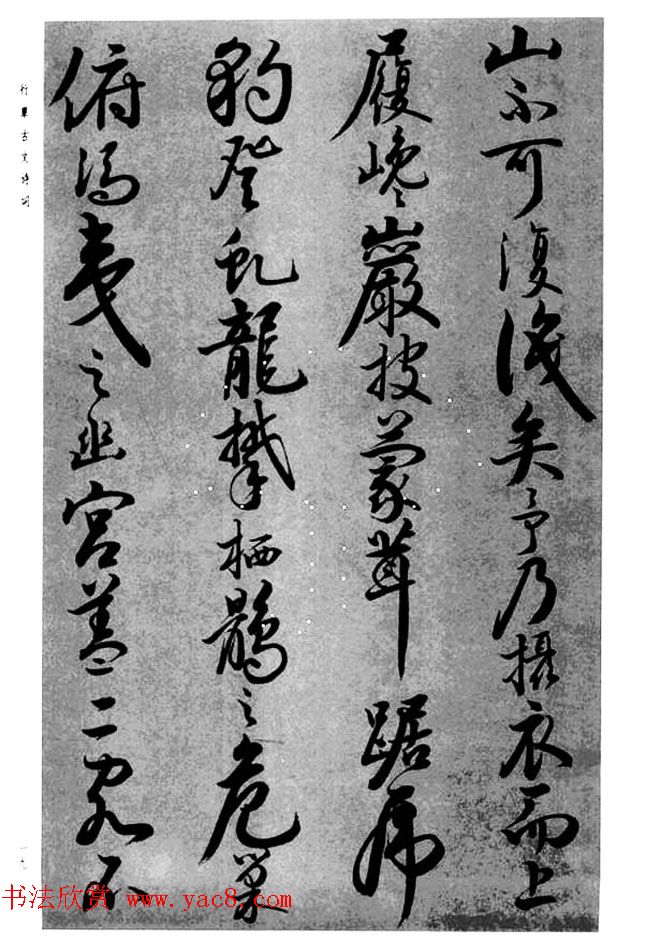 山不可復識矣予乃攝衣而上
履巉巖披蒙茸踞虎
豹登虬龍攀栖鶻之危巢
俯馮夷之幽宮蓋二客不
行草古文诗词
书法欣赏 www.yac8.com